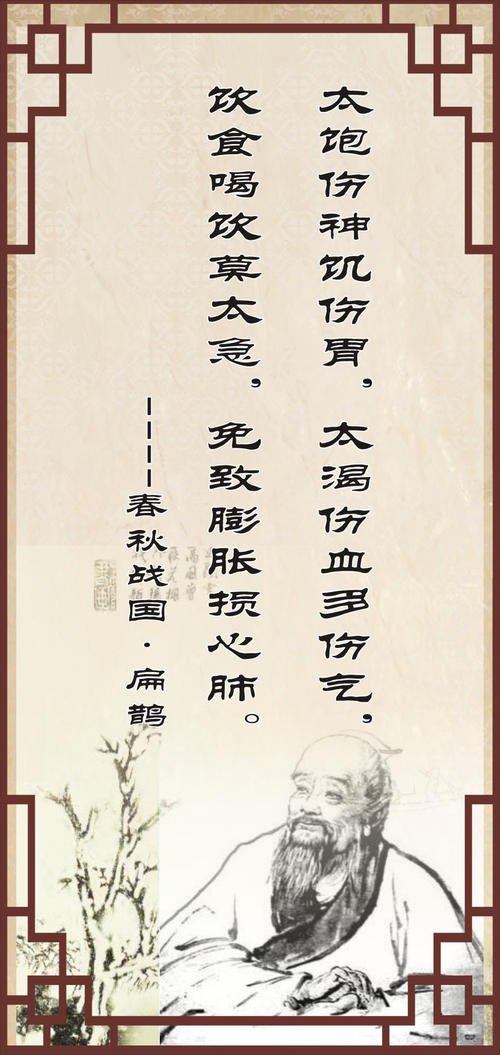 太饱伤神饥伤胃，太渴伤血多伤气，
饮食喝饮莫太急，免致膨胀损心肺。
————春秋战国·扁鹊